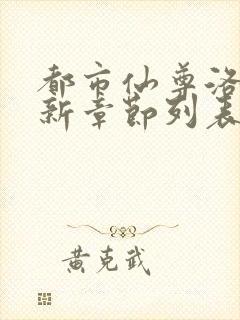 都市仙尊洛
新章節列表
黄克武